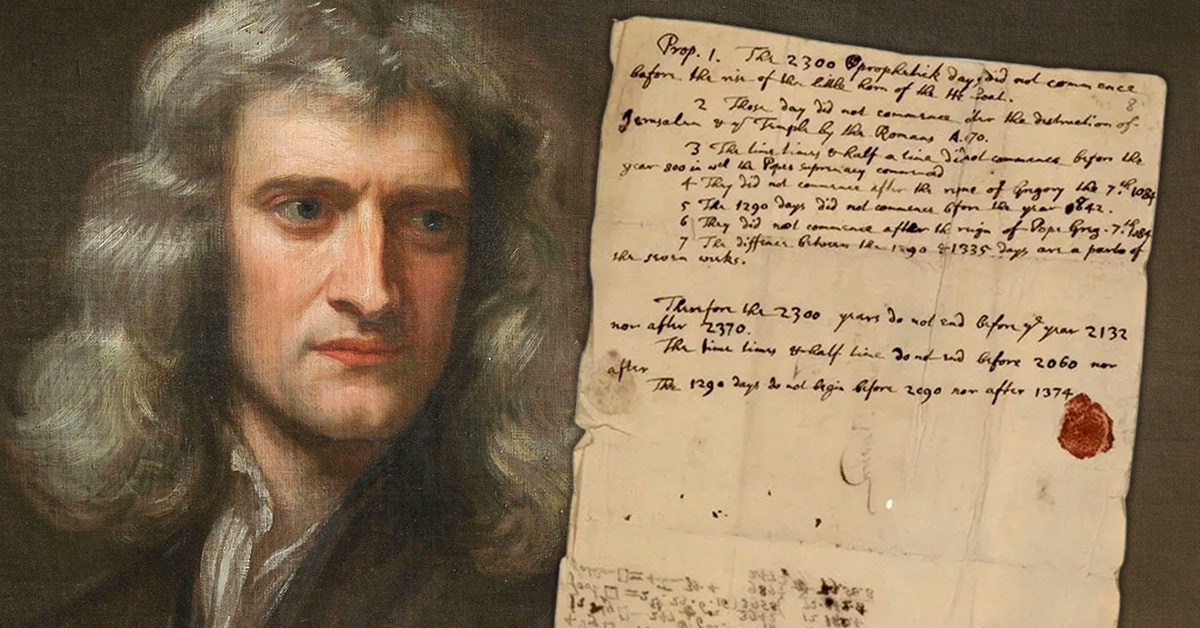 Prop. 1. The 2300 prophetick days did not commence
before the rise of the little horn of the He Goat.
8
2 Those day did not commence after the destruction of
Jerusalem & yᵉ Temple by the Romans A. 70.
3 The time times & half a time did not commence before the
year 800 in wᶜʰ the Popes supremacy commenced
4 They did not commence after the reigne of Gregory the 7.ᵗʰ 1084
5 The 1290 days did not commence before the year 842.
6 They did not commence after the reign of Pope Greg. 7.ᵗʰ 1084
7 The diffence between the 1290 & 1335 days are a parts of
the seven weeks.
Therefore the 2300 years do not end before yᵉ year 2132
nor after 2370.
The time times & half time do not end before 2060 nor
after
The 1290 days do not begin before 2090 nor after 1374